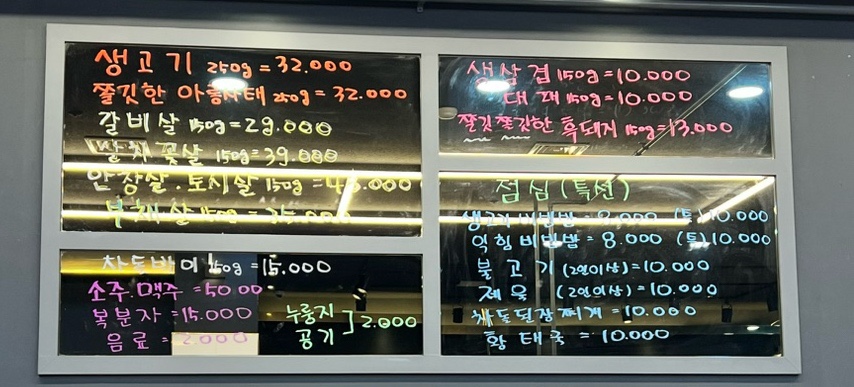 생고기 250g = 32.000
쫄깃한 아롱사태 250g = 32.000
갈비살 150g = 29.000
꽃살 150g = 39.000
안창살 . 토시살 150g =
부채살 150g =
차돌박이 150g = 15.000
소주.맥주 = 50 00
복분자 = 15.000
음료 = 2.000
누룽지
공기 ] 2.000
생삼겹 150g = 10.000
대패 150g = 10.000
쫄깃쫄깃한 흑돼지 150g = 13.000
점심 (특선)
생고기 비빔밥 = 8.000 (특) 10.000
익힘 비빔밥 = 8.000 (특) 10.000
불고기 (2인이상) = 10.000
제육 (2인이상) = 10.000
차돌된장찌개 = 10.000
황태국 = 10.000